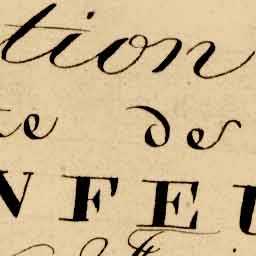 tion
te de
NFEU